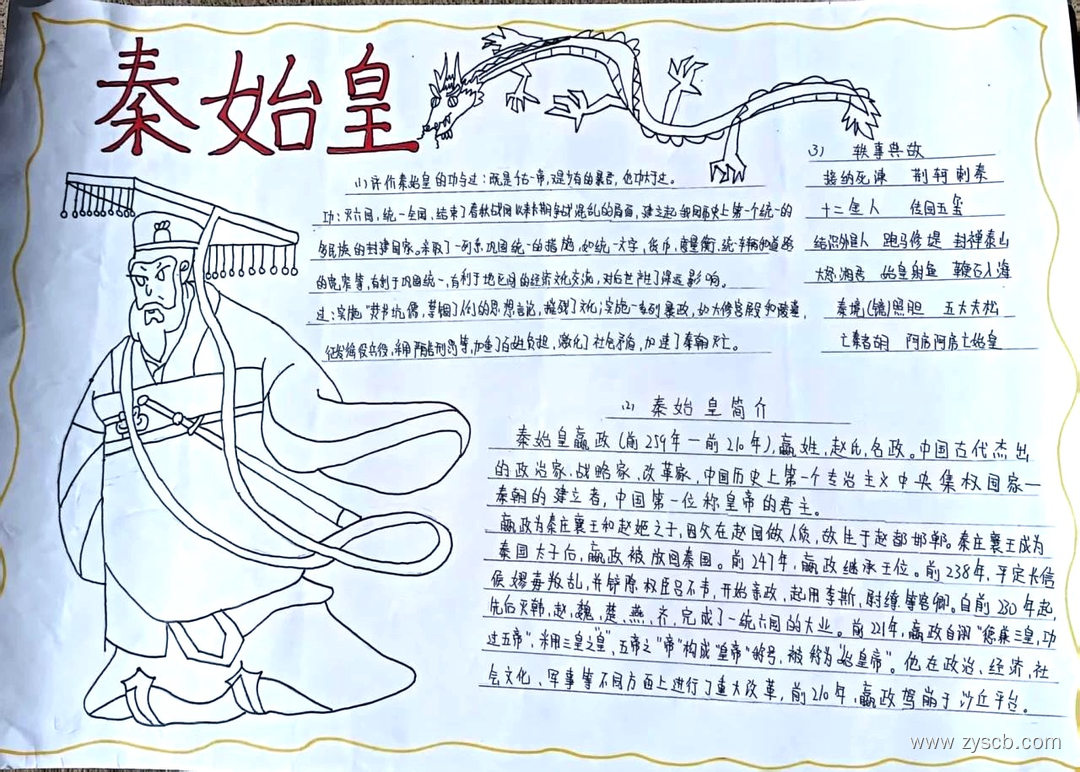 秦始皇
(1)评价秦始皇的功与过:既是千古一帝,又是少有的暴君,也功大于过。
功:灭六国,统一全国,结束了春秋战国以来长期争战混乱的局面,建立起我国历史上第一个统一的
多民族的封建国家。采取了一列系巩固统一的措施,如统一文字,货币,度量衡,统一车辆和道路
的宽窄等,有利于巩固统一,有利于地区间的经济文化交流,对后世产生了深远影响。
过:实施"焚书坑儒,禁锢了人们的思想言论,摧残了文化;实施一系列暴政,如大修宫殿和陵墓,
征发徭役兵役,采用严酷刑罚等,加重了百姓负担,激化了社会矛盾,加速了秦朝灭亡。
3) 轶事典故
接纳死谏 荆轲刺秦
十二金人 传国玉玺
结识外星人 跑马修堤 封禅泰山
大怒湘君 始皇射鱼 鞭石入海
秦境(镜)照胆 五大夫松
亡秦者胡 阿房阿房亡始皇
(2) 秦始皇简介
秦始皇嬴政(前259年一前210年),嬴姓,赵氏,名政。中国古代杰出
的政治家、战略家、改革家,中国历史上第一个专治主义中央集权国家一
秦朝的建立者,中国第一位称皇帝的君主。
嬴政为秦庄襄王和赵姬之子,因父在赵国做人质,故生于赵都邯郸。秦庄襄王成为
秦国太子后,嬴政被放回秦国。前247年,嬴政继承王位。前238年,平定长信
侯嫪毐叛乱,并铲除权臣吕不韦,开始亲政,起用李斯,尉缭等客卿。自前230年起,
先后灭韩,赵,魏,楚,燕,齐,完成了一统六国的大业。前221年,嬴政自诩"德兼三皇,功
过五帝",采用三皇之"皇",五帝之"帝"构成"皇帝"称号,被称为"始皇帝"。他在政治、经济,社
会文化、军事等不同方面上进行了重大改革,前210年,嬴政驾崩于沙丘平台。
www.zyscb.com